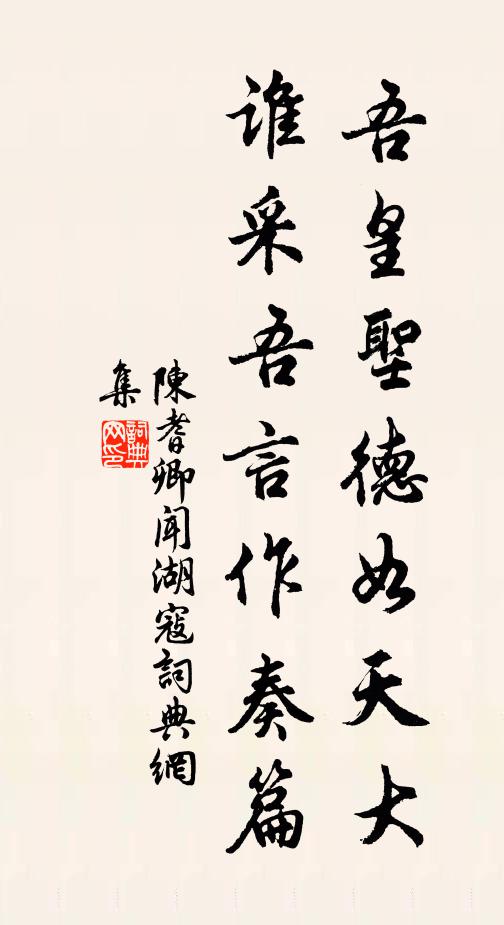 吾皇聖德如天大
谁采吾言作奏篇
陳耆卿聞湖寇詞典網
集
詞典
网印